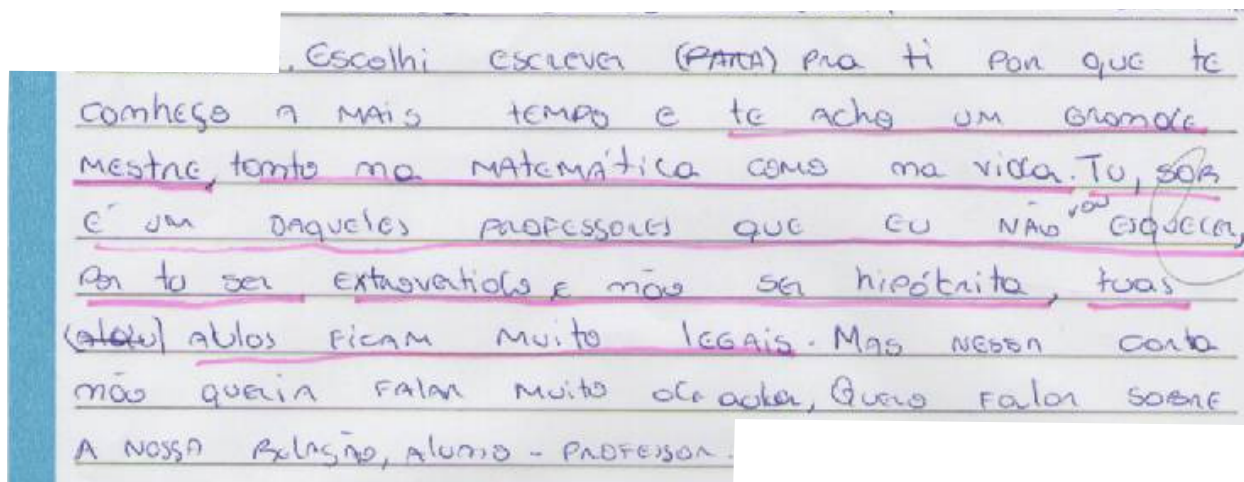 . Escolhi escrever (PARA) pra ti por que te
conheço a mais tempo e te acho um grande
mestre, tanto na matemática como na vida. Tu, sor
é um daqueles professores que eu não vou esquecer,
por tu ser extrovertido e não ser hipócrita, tuas
aulas ficam muito legais. Mas nessa carta
não queria falar muito de aula, Quero falar sobre
a nossa relação, aluno - professor.